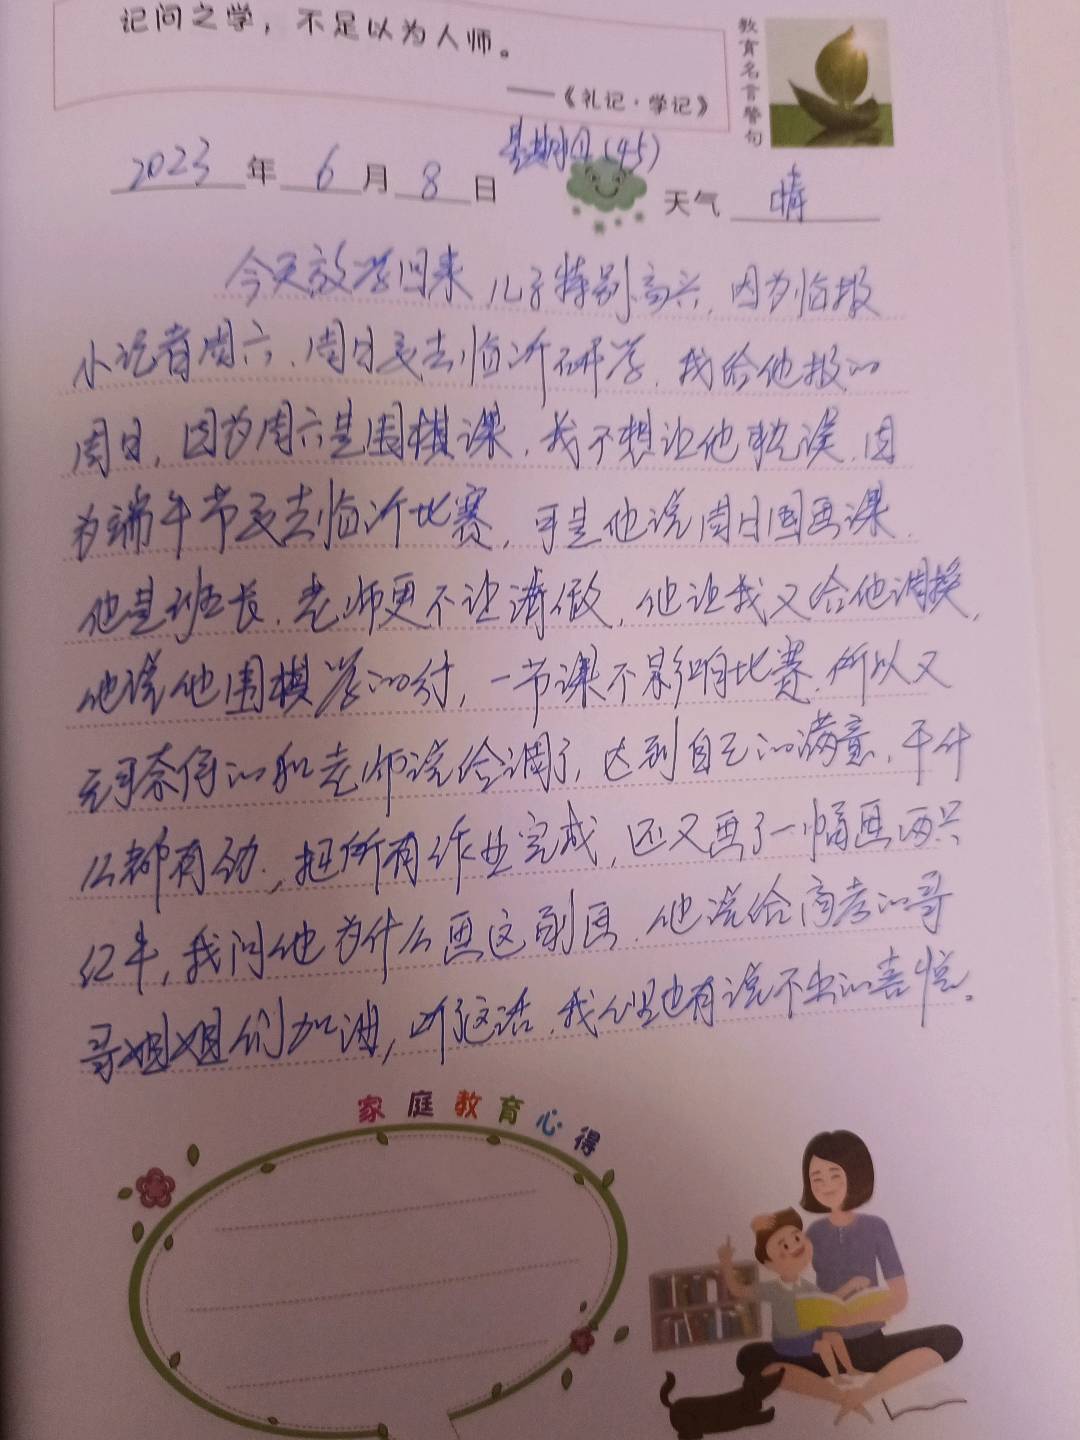 记问之学，不足以为人师。
——《礼记·学记》
教育名言警句
2023年6月8日 星期四(45) 天气 晴
今天放学回来，儿子特别高兴，因为临报
小记者周六、周日要去临沂研学，我给他报的
周日，因为周六是围棋课，我不想让他耽误，因
为端午节要去临沂比赛，可是他说周日国画课，
他是班长，老师更不让请假，他让我又给他调换，
他说他围棋学的好，一节课不影响比赛，所以又
无可奈何的和老师说给调了，达到自己的满意，干什
么都有劲，把所有作业完成，还又画了一幅画两只
红牛，我问他为什么画这副画，他说给高考的哥
哥姐姐们加油，听了这话，我心里也有说不出的喜悦。
家庭教育心得